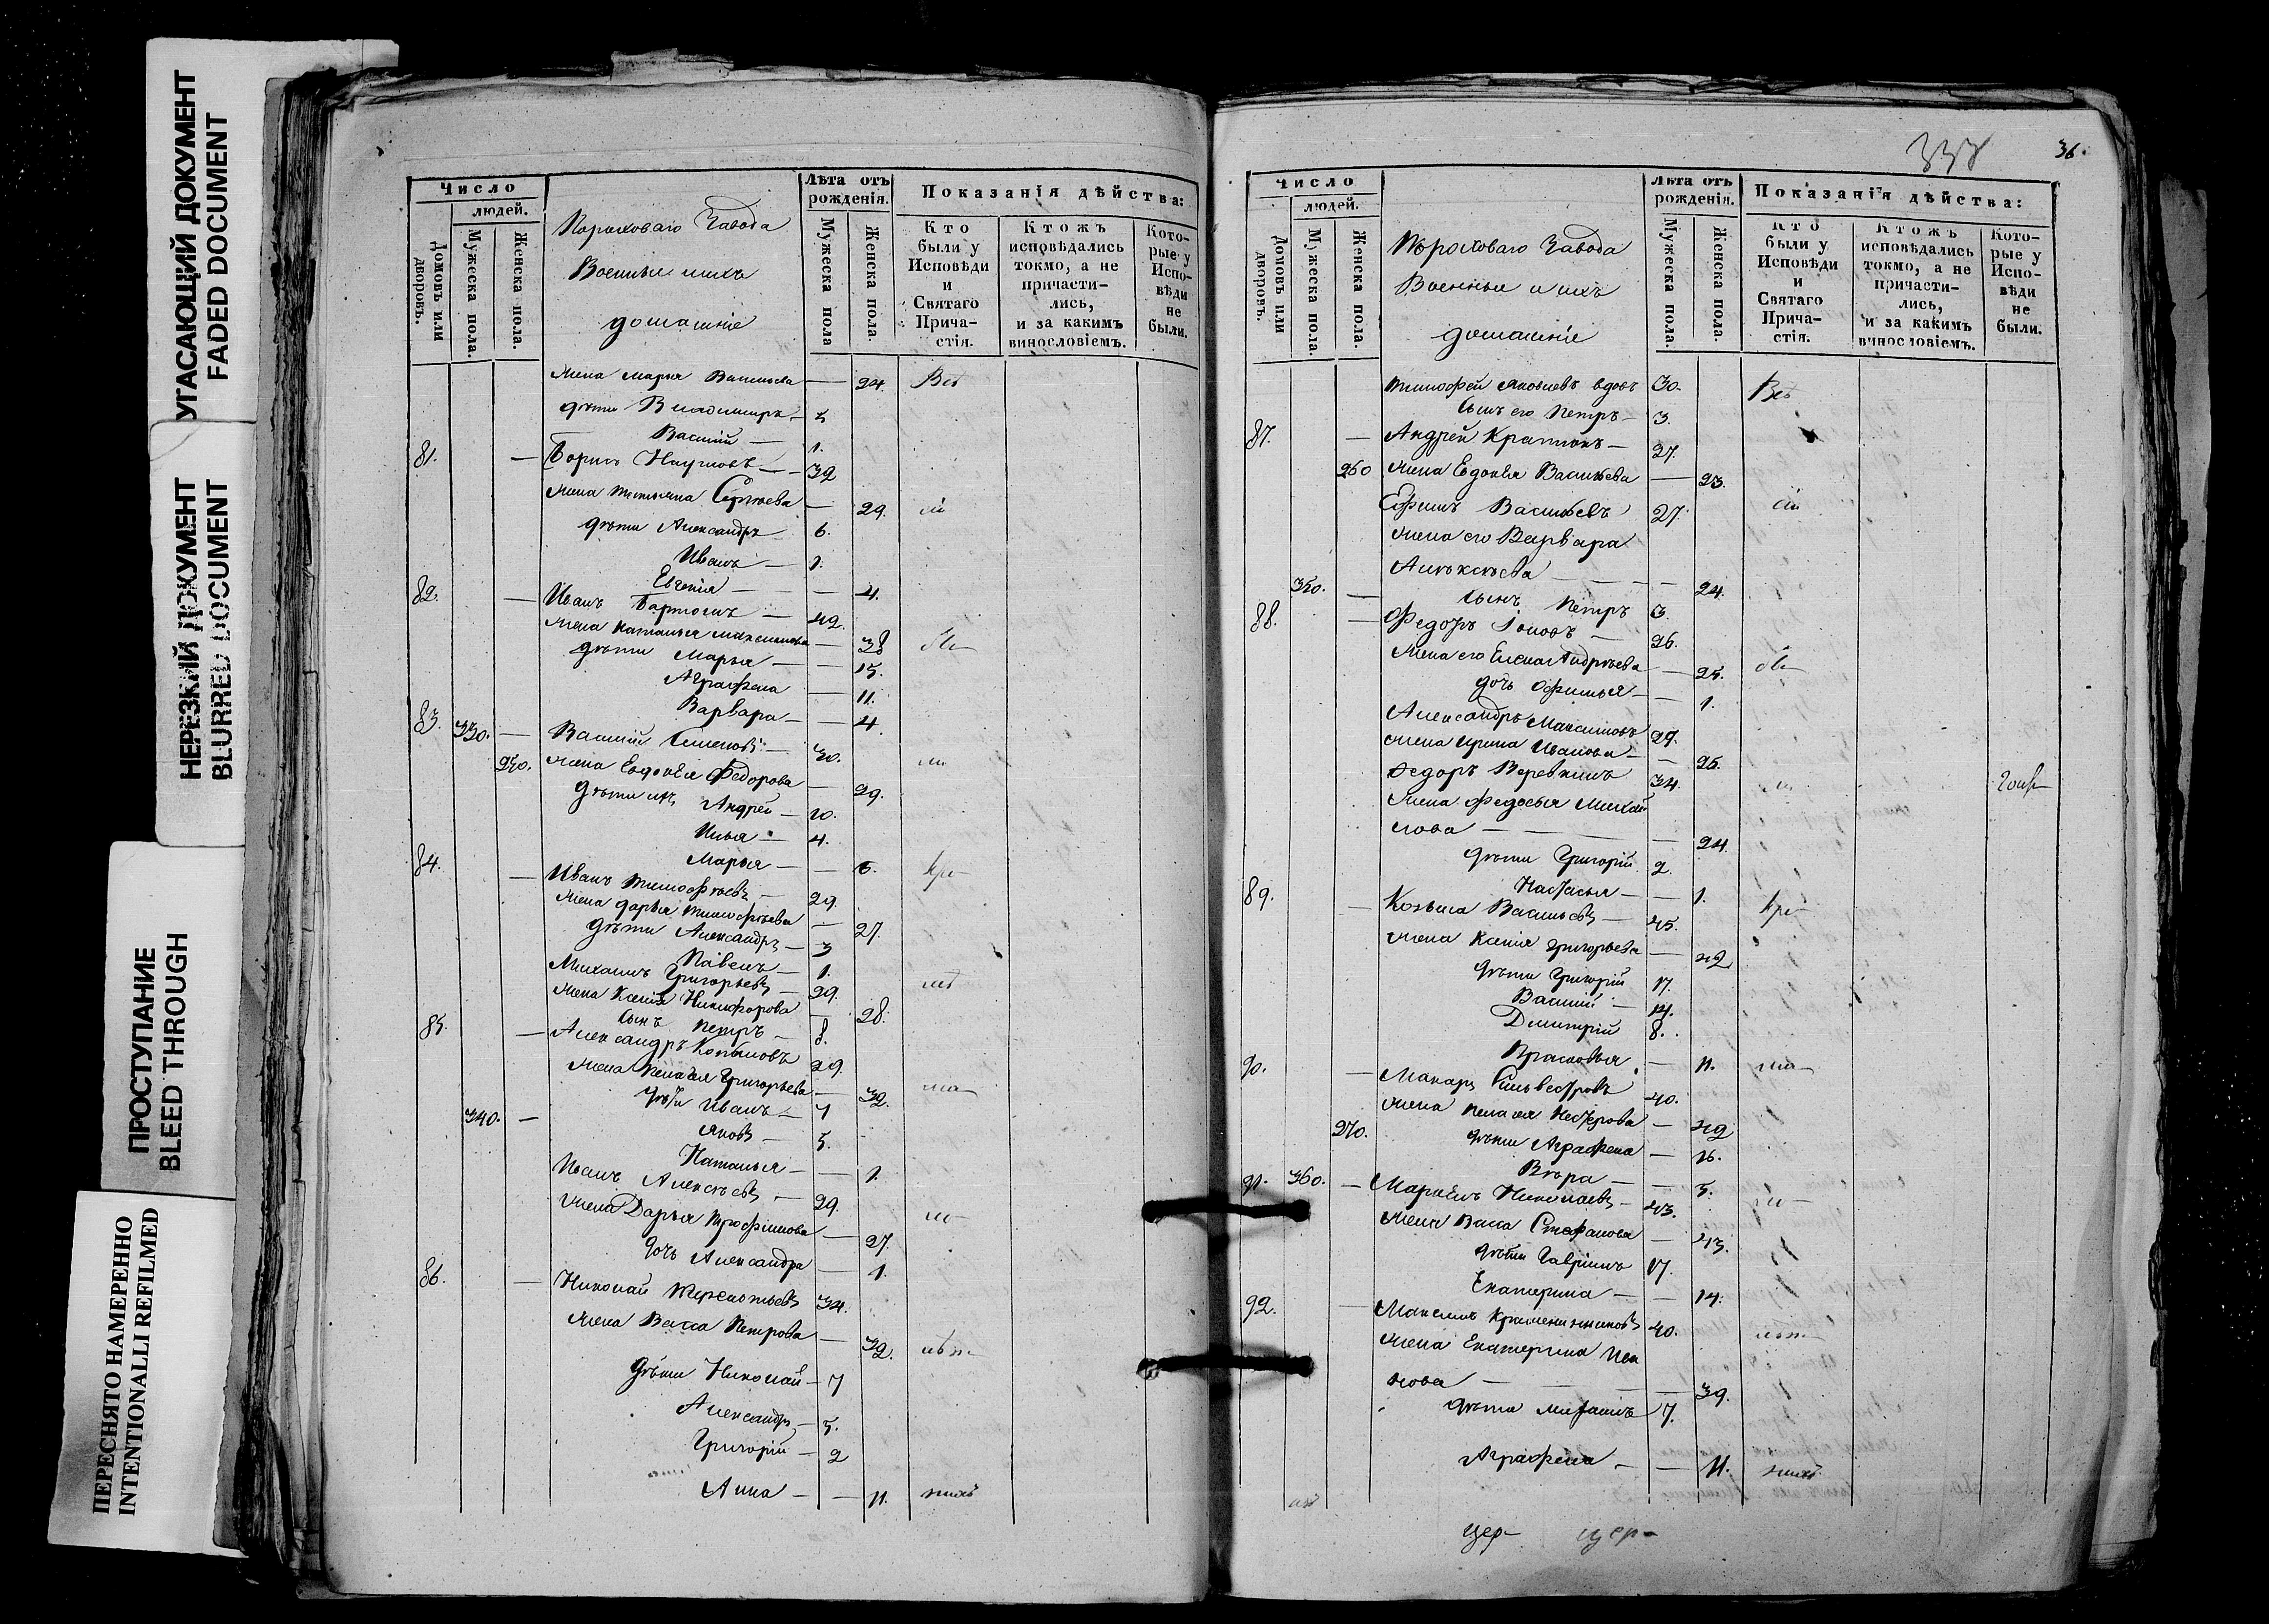 УГАСАЮЩИЙ ДОКУМЕНТ
FADED DOCUMENT
НЕРЕЗКИЙ ДОКУМЕНТ
BLURRED DOCUMENT
ПРОСТУПАНИЕ
BLEED THROUGH
ПЕРЕСНЯТО НАМЕРЕННО
INTENTIONALLI REFILMED
Число
людей.
Домовъ или дворовъ.
Мужеска пола.
Женска пола.
Пороховаго Завода
Военные и ихъ
домашніе
Лѣта отъ рожденія.
Мужеска пола
Женска пола.
Показанія дѣйства:
Кто были у Исповѣди и Святаго Прича-стія.
Ктожъ исповѣдались токмо, а не причасти-лись, и за какимъ винословіемъ.
Кото-рые у Испо-вѣди не были.
жена Марья Васильева — 24. Всѣ
дѣти Владимиръ —
Василій — 1.
81. — Борисъ Наумовъ — 32
жена Татьяна Сергѣева — 29.
дѣти Александръ 6.
Иванъ — 1.
Евгенія — 4.
82. — Иванъ — 42.
жена Наталья Максимова — 38
дѣти Марья — 15.
Аграфена — 11.
Варвара — 4.
83. 330. — Василій Семеновъ — 30.
250. жена Евдокія Федорова — 29.
дѣти ихъ Андрей — 10.
Илья — 4.
Марья — 6.
84. — Иванъ Тимофѣевъ — 29.
жена Дарья Тимофѣева — 27.
дѣти Александръ — 3
Павелъ — 1.
Михаилъ Григорьевъ — 29.
жена Ксенія Никифорова — 28.
сынъ Петръ — 8.
85. — Александръ Копыловъ 29.
жена Пелагея Григорьева — 32.
дѣти Иванъ — 7
340. — Яковъ — 5.
Наталья — 1.
Иванъ Алексѣевъ — 29.
жена Дарья Трофимова — 27.
дочь Александра — 1.
86. — Николай Терентьевъ 34.
жена Васса Петрова — 32.
дѣти Николай — 7
Александръ — 5.
Григорій — 2
Анна — 11.
338
36.
Число
людей.
Домовъ или дворовъ.
Мужеска пола.
Женска пола.
Пороховаго Завода
Военные и ихъ
домашніе
Лѣта отъ рожденія.
Мужеска пола.
Женска пола.
Показанія дѣйства:
Кто были у Исповѣди и Святаго Прича-стія.
Ктожъ исповѣдались токмо, а не причасти-лись, и за какимъ винословіемъ.
Кото-рые у Испо-вѣди не были.
Тимофей Яковлевъ вдовъ 30. Всѣ
сынъ его Петръ — 3.
87. — Андрей — 27.
260 жена Евдокія Васильева — 23.
Ефимъ Васильевъ 27.
жена его Варвара
Алексѣева — 24.
350. — сынъ Петръ 3.
88. — Федоръ — 26.
жена его Елена Андреева — 25.
дочь Офимья — 1.
Александръ Максимовъ 29.
жена Ирина Иванова — 25.
Федоръ Веревкинъ 34.
жена Федосья Михай
лова — 24.
дѣти Григорій 2.
Настасья — 1.
89. — Козьма Васильевъ — 45.
жена Ксенія Григорьева — 42
дѣти Григорій 17.
Василій — 14.
Дмитрій 8.
Прасковья — 11.
90. — Макаръ Сильвестровъ 40.
жена Пелагея Нестерова — 42
270. дѣти Аграфена — 16.
Вѣра — 5.
91. 360. — Маркелъ Николаевъ — 43.
жена Васса Стефанова — 43.
дѣти Гавріилъ 17.
Екатерина — 14.
92. — Максимъ 40.
жена Екатерина Ива
нова — 39.
дѣти Михаилъ 7.
Аграфена — 11.
цер- цер-